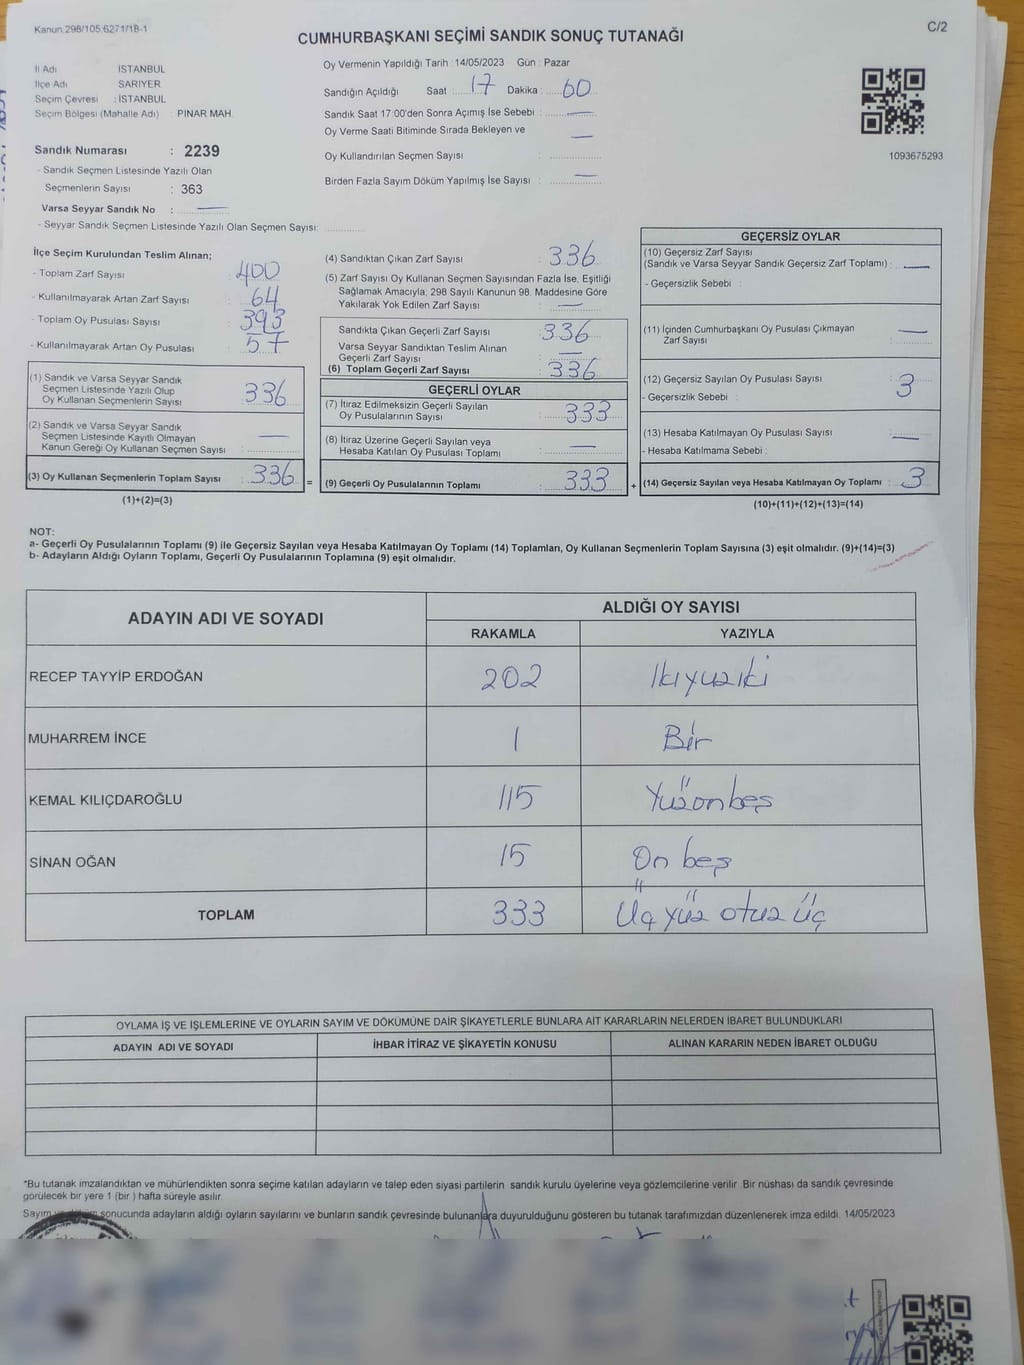 Kanun:298/105:6271/18-1
C/2
CUMHURBAŞKANI SEÇİMİ SANDIK SONUÇ TUTANAĞI
İl Adı İSTANBUL
İlçe Adı SARIYER
Seçim Çevresi : İSTANBUL
Seçim Bölgesi (Mahalle Adı) : PINAR MAH.
Sandık Numarası : 2239
- Sandık Seçmen Listesinde Yazılı Olan
Seçmenlerin Sayısı : 363
Varsa Seyyar Sandık No : —
- Seyyar Sandık Seçmen Listesinde Yazılı Olan Seçmen Sayısı:
Oy Vermenin Yapıldığı Tarih : 14/05/2023 Gün : Pazar
Sandığın Açıldığı Saat : 17 Dakika : 60
Sandık Saat 17:00'den Sonra Açımış İse Sebebi : —
Oy Verme Saati Bitiminde Sırada Bekleyen ve —
Oy Kullandırılan Seçmen Sayısı :
Birden Fazla Sayım Döküm Yapılmış İse Sayısı : —
1093675293
İlçe Seçim Kurulundan Teslim Alınan;
- Toplam Zarf Sayısı : 400
- Kullanılmayarak Artan Zarf Sayısı : 64
- Toplam Oy Pusulası Sayısı : 393
- Kullanılmayarak Artan Oy Pusulası : 57
(1) Sandık ve Varsa Seyyar Sandık
Seçmen Listesinde Yazılı Olup
Oy Kullanan Seçmenlerin Sayısı : 336
(2) Sandık ve Varsa Seyyar Sandık
Seçmen Listesinde Kayıtlı Olmayan
Kanun Gereği Oy Kullanan Seçmen Sayısı : —
(3) Oy Kullanan Seçmenlerin Toplam Sayısı : 336 =
(1)+(2)=(3)
(4) Sandıktan Çıkan Zarf Sayısı : 336
(5) Zarf Sayısı Oy Kullanan Seçmen Sayısından Fazla İse, Eşitliği
Sağlamak Amacıyla; 298 Sayılı Kanunun 98. Maddesine Göre
Yakılarak Yok Edilen Zarf Sayısı : —
Sandıkta Çıkan Geçerli Zarf Sayısı : 336
Varsa Seyyar Sandıktan Teslim Alınan
Geçerli Zarf Sayısı : —
(6) Toplam Geçerli Zarf Sayısı : 336
GEÇERLİ OYLAR
(7) İtiraz Edilmeksizin Geçerli Sayılan
Oy Pusulalarının Sayısı : 333
(8) İtiraz Üzerine Geçerli Sayılan veya
Hesaba Katılan Oy Pusulası Toplamı : —
(9) Geçerli Oy Pusulalarının Toplamı : 333 +
GEÇERSİZ OYLAR
(10) Geçersiz Zarf Sayısı
(Sandık ve Varsa Seyyar Sandık Geçersiz Zarf Toplamı) : —
- Geçersizlik Sebebi :
(11) İçinden Cumhurbaşkanı Oy Pusulası Çıkmayan
Zarf Sayısı : —
(12) Geçersiz Sayılan Oy Pusulası Sayısı : 3
- Geçersizlik Sebebi :
(13) Hesaba Katılmayan Oy Pusulası Sayısı : —
- Hesaba Katılmama Sebebi :
(14) Geçersiz Sayılan veya Hesaba Katılmayan Oy Toplamı : 3
(10)+(11)+(12)+(13)=(14)
NOT:
a- Geçerli Oy Pusulalarının Toplamı (9) ile Geçersiz Sayılan veya Hesaba Katılmayan Oy Toplamı (14) Toplamları, Oy Kullanan Seçmenlerin Toplam Sayısına (3) eşit olmalıdır. (9)+(14)=(3)
b- Adayların Aldığı Oyların Toplamı, Geçerli Oy Pusulalarının Toplamına (9) eşit olmalıdır.
ADAYIN ADI VE SOYADI ALDIĞI OY SAYISI
RAKAMLA YAZIYLA
RECEP TAYYİP ERDOĞAN 202 İkiyüziki
MUHARREM İNCE 1 Bir
KEMAL KILIÇDAROĞLU 115 Yüzonbeş
SİNAN OĞAN 15 On beş
TOPLAM 333 Üç yüz otuz üç
OYLAMA İŞ VE İŞLEMLERİNE VE OYLARIN SAYIM VE DÖKÜMÜNE DAİR ŞİKAYETLERLE BUNLARA AİT KARARLARIN NELERDEN İBARET BULUNDUKLARI
ADAYIN ADI VE SOYADI İHBAR İTİRAZ VE ŞİKAYETİN KONUSU ALINAN KARARIN NEDEN İBARET OLDUĞU
*Bu tutanak imzalandıktan ve mühürlendikten sonra seçime katılan adayların ve talep eden siyasi partilerin sandık kurulu üyelerine veya gözlemcilerine verilir. Bir nüshası da sandık çevresinde
görülecek bir yere 1 (bir ) hafta süreyle asılır.
Sayım ve döküm sonucunda adayların aldığı oyların sayılarını ve bunların sandık çevresinde bulunanlara duyurulduğunu gösteren bu tutanak tarafımızdan düzenlenerek imza edildi. 14/05/2023